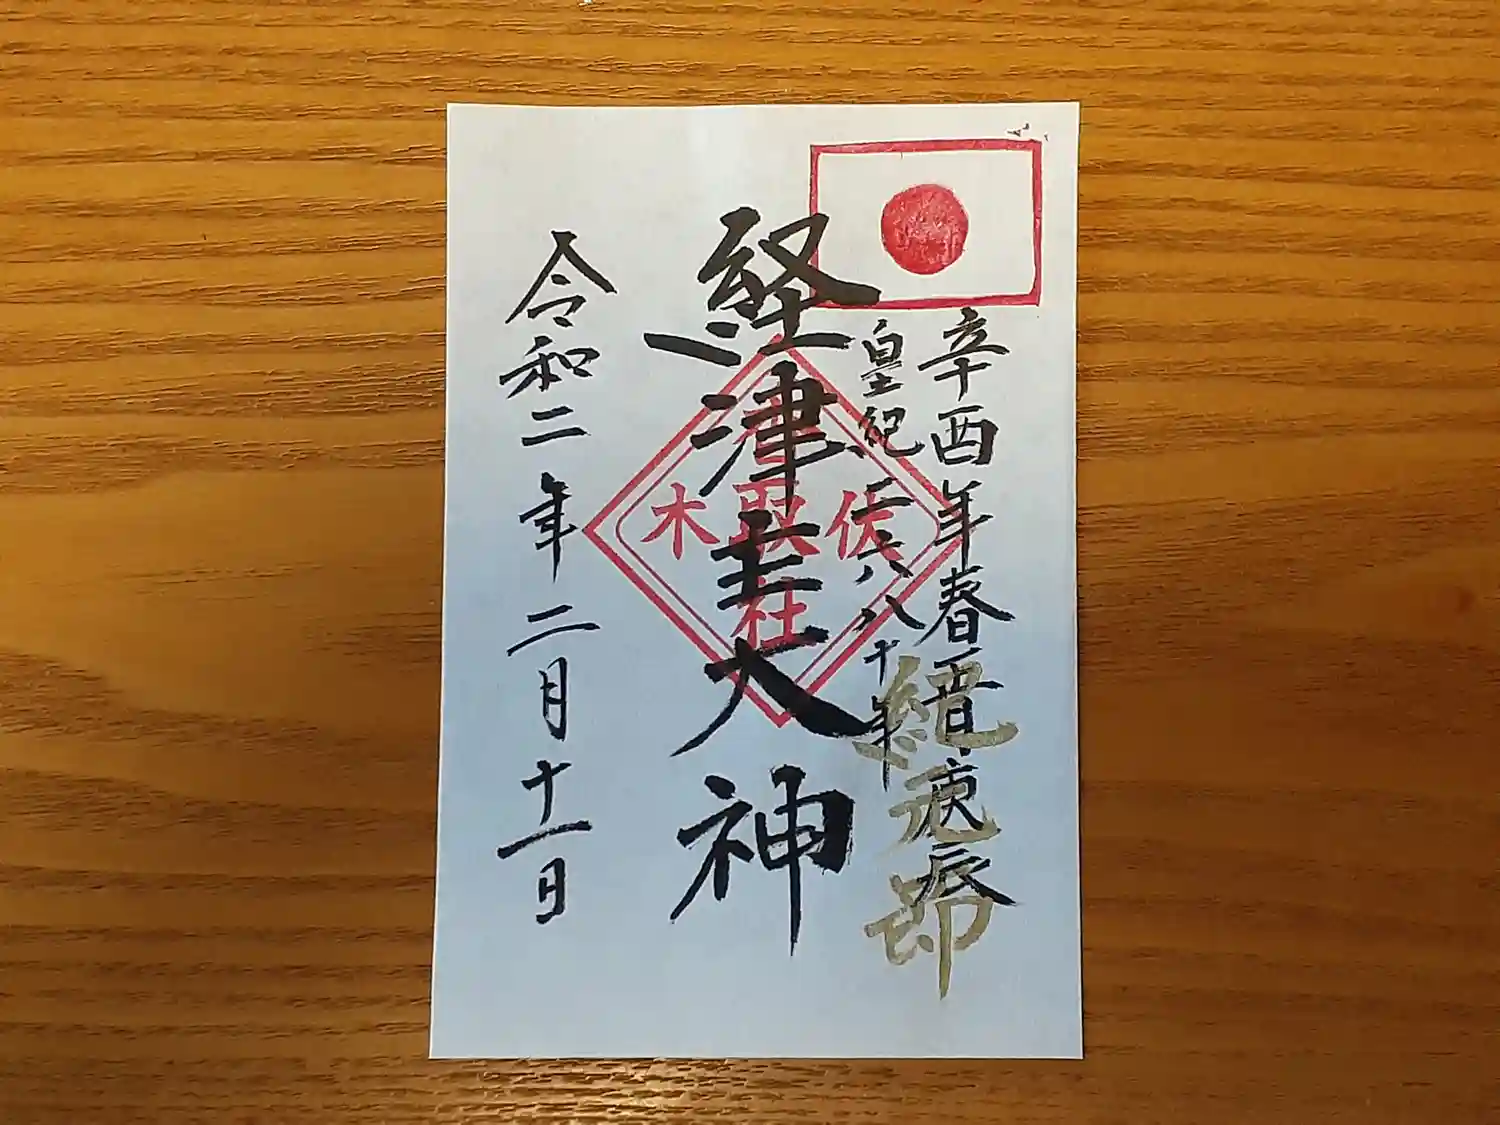 辛酉年春正月庚辰
紀元節
皇紀二六八十年
経津主大神
伏木
香取社
令和二年二月十一日